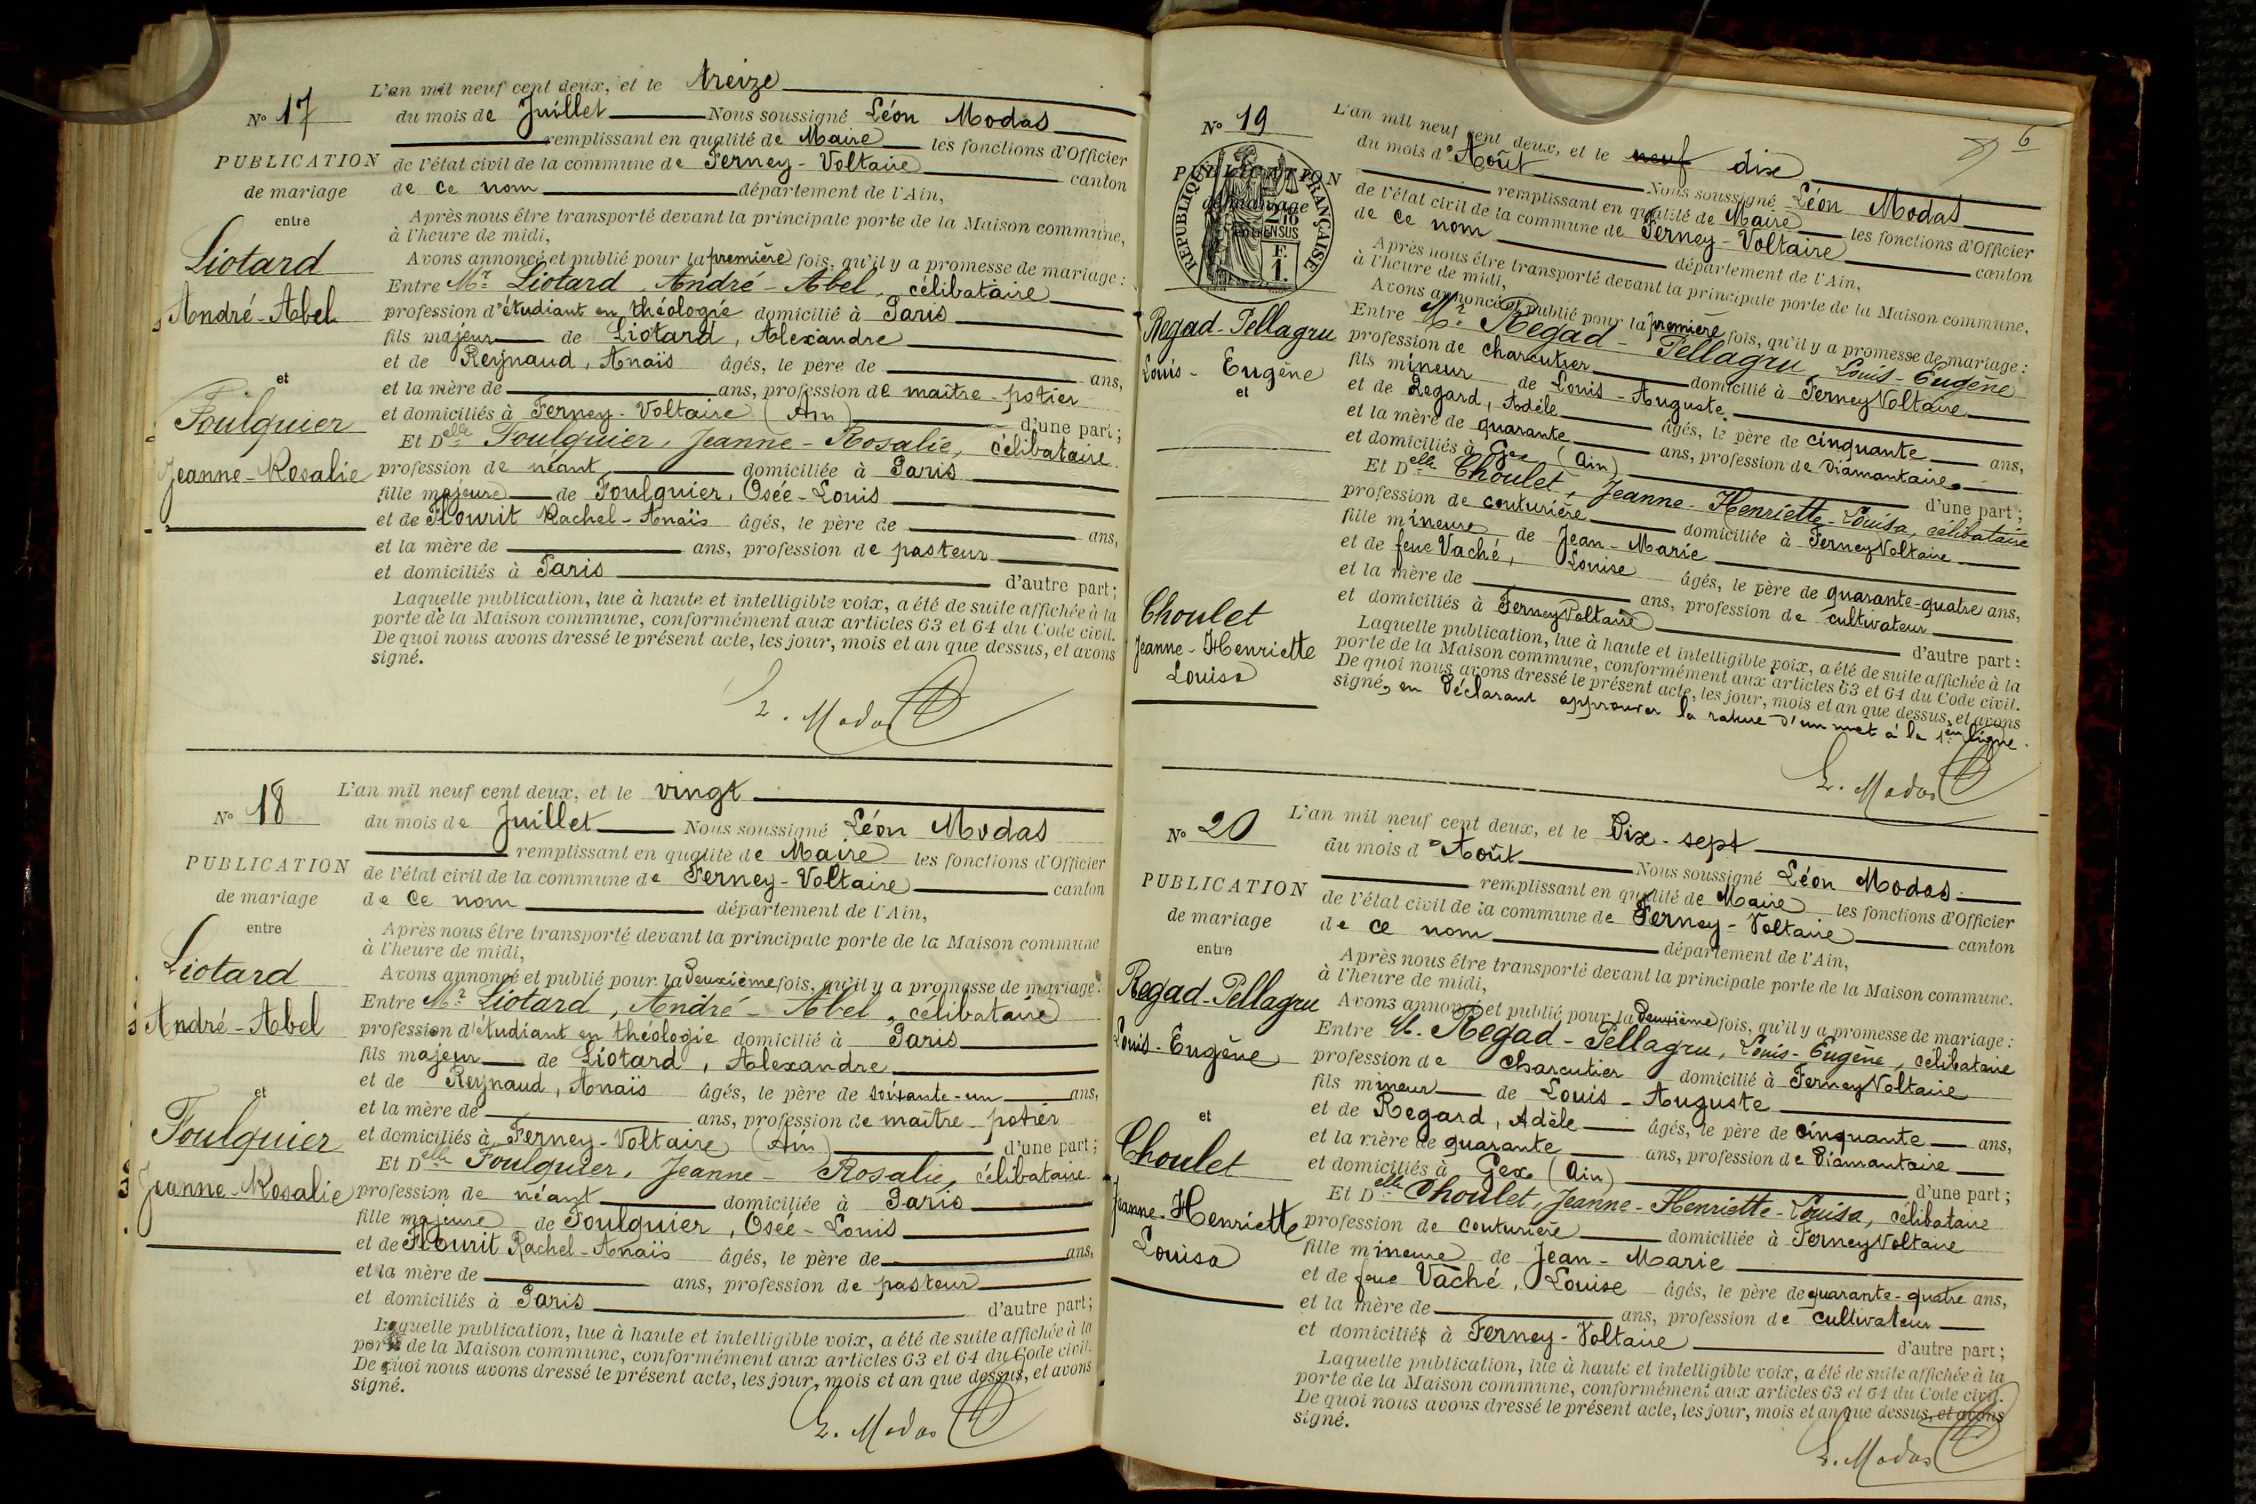 L'an mil neuf cent deux, et le treize
N° 17
du mois de Juillet Nous soussigné Léon Modas
remplissant en qualité de Maire les fonctions d'Officier
PUBLICATION
de l'état civil de la commune de Ferney-Voltaire canton
de mariage
de ce nom département de l'Ain,
entre
Après nous être transporté devant la principale porte de la Maison commune,
à l'heure de midi,
Liotard
Avons annoncé et publié pour la première fois, qu'il y a promesse de mariage :
Entre Mr Liotard, André-Abel, célibataire
André-Abel
profession d'étudiant en théologie domicilié à Paris
fils majeur de Liotard, Alexandre
et de Reynaud, Anaïs âgés, le père de ans,
et
et la mère de ans, profession de maître-potier
et domiciliés à Ferney-Voltaire (Ain) d'une part;
Foulquier
Et Delle Foulquier, Jeanne-Rosalie, célibataire
Jeanne-Rosalie
profession de néant domiciliée à Paris
fille majeure de Foulquier, Osée-Louis
et de Flourit Rachel-Anaïs âgés, le père de ans,
et la mère de ans, profession de pasteur
et domiciliés à Paris d'autre part;
Laquelle publication, lue à haute et intelligible voix, a été de suite affichée à la
porte de la Maison commune, conformément aux articles 63 et 64 du Code civil.
De quoi nous avons dressé le présent acte, les jour, mois et an que dessus, et avons
signé.
L. Modas
L'an mil neuf cent deux, et le vingt
N° 18
du mois de Juillet Nous soussigné Léon Modas
remplissant en qualité de Maire les fonctions d'Officier
PUBLICATION
de l'état civil de la commune de Ferney-Voltaire canton
de mariage
de ce nom département de l'Ain,
entre
Après nous être transporté devant la principale porte de la Maison commune
à l'heure de midi,
Liotard
Avons annoncé et publié pour la Deuxième fois, qu'il y a promesse de mariage :
Entre Mr Liotard, André-Abel, célibataire
André-Abel
profession d'étudiant en théologie domicilié à Paris
fils majeur de Liotard, Alexandre
et de Reynaud, Anaïs âgés, le père de soixante-un ans,
et
et la mère de ans, profession de maître-potier
Foulquier
et domiciliés à Ferney-Voltaire (Ain) d'une part;
Et Delle Foulquier, Jeanne-Rosalie, célibataire
Jeanne-Rosalie
profession de néant domiciliée à Paris
fille majeure de Foulquier, Osée-Louis
et de Flourit Rachel-Anaïs âgés, le père de ans,
et la mère de ans, profession de pasteur
et domiciliés à Paris d'autre part;
Laquelle publication, lue à haute et intelligible voix, a été de suite affichée à la
porte de la Maison commune, conformément aux articles 63 et 64 du Code civil.
De quoi nous avons dressé le présent acte, les jour, mois et an que dessus, et avons
signé.
L. Modas
6
N° 19
L'an mil neuf cent deux, et le neuf dix
du mois d'Août Nous soussigné Léon Modas
PUBLICATION
remplissant en qualité de Maire les fonctions d'Officier
de mariage
de l'état civil de la commune de Ferney-Voltaire canton
RÉPUBLIQUE FRANÇAISE
de ce nom département de l'Ain,
Après nous être transporté devant la principale porte de la Maison commune,
à l'heure de midi,
Avons annoncé et publié pour la première fois, qu'il y a promesse de mariage :
Regad-Pellagru
Entre Mr Regad-Pellagru, Louis-Eugène
Louis-Eugène
profession de charcutier domicilié à Ferney Voltaire
et
fils mineur de Louis-Auguste
et de Regard, Adèle âgés, le père de cinquante ans,
et la mère de quarante ans, profession de Diamantaire
et domiciliés à Gex (Ain) d'une part;
Et Delle Choulet, Jeanne-Henriette-Louisa, célibataire
profession de couturière domiciliée à Ferney Voltaire
fille mineure de Jean-Marie
et de feue Vaché, Louise âgés, le père de quarante-quatre ans,
Choulet
et la mère de ans, profession de cultivateur
Jeanne-Henriette
et domiciliés à Ferney Voltaire d'autre part :
Louisa
Laquelle publication, lue à haute et intelligible voix, a été de suite affichée à la
porte de la Maison commune, conformément aux articles 63 et 64 du Code civil.
De quoi nous avons dressé le présent acte, les jour, mois et an que dessus, et avons
signé, en Déclarant approuver la rature d'un mot à la 1ère ligne.
L. Modas
N° 20
L'an mil neuf cent deux, et le Dix-sept
du mois d'Août Nous soussigné Léon Modas
PUBLICATION
remplissant en qualité de Maire les fonctions d'Officier
de mariage
de l'état civil de la commune de Ferney-Voltaire canton
entre
de ce nom département de l'Ain,
Après nous être transporté devant la principale porte de la Maison commune.
à l'heure de midi,
Regad-Pellagru
Avons annoncé et publié pour la Deuxième fois, qu'il y a promesse de mariage :
Louis-Eugène
Entre M. Regad-Pellagru, Louis-Eugène, célibataire
profession de charcutier domicilié à Ferney Voltaire
fils mineur de Louis-Auguste
et
et de Regard, Adèle âgés, le père de cinquante ans,
Choulet
et la mère de quarante ans, profession de Diamantaire
et domiciliés à Gex (Ain) d'une part;
Jeanne-Henriette
Et Delle Choulet, Jeanne-Henriette-Louisa, célibataire
Louisa
profession de couturière domiciliée à Ferney Voltaire
fille mineure de Jean-Marie
et de feue Vaché, Louise âgés, le père de quarante-quatre ans,
et la mère de ans, profession de cultivateur
et domiciliés à Ferney-Voltaire d'autre part;
Laquelle publication, lue à haute et intelligible voix, a été de suite affichée à la
porte de la Maison commune, conformément aux articles 63 et 64 du Code civil.
De quoi nous avons dressé le présent acte, les jour, mois et an que dessus, et avons
signé.
L. Modas